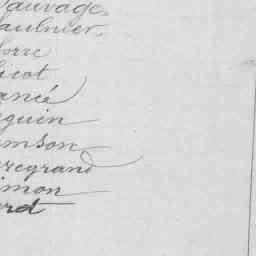 Sauvage.
aulnier.
orre
icot
ancé
guin
amson
regrand
imon
ard